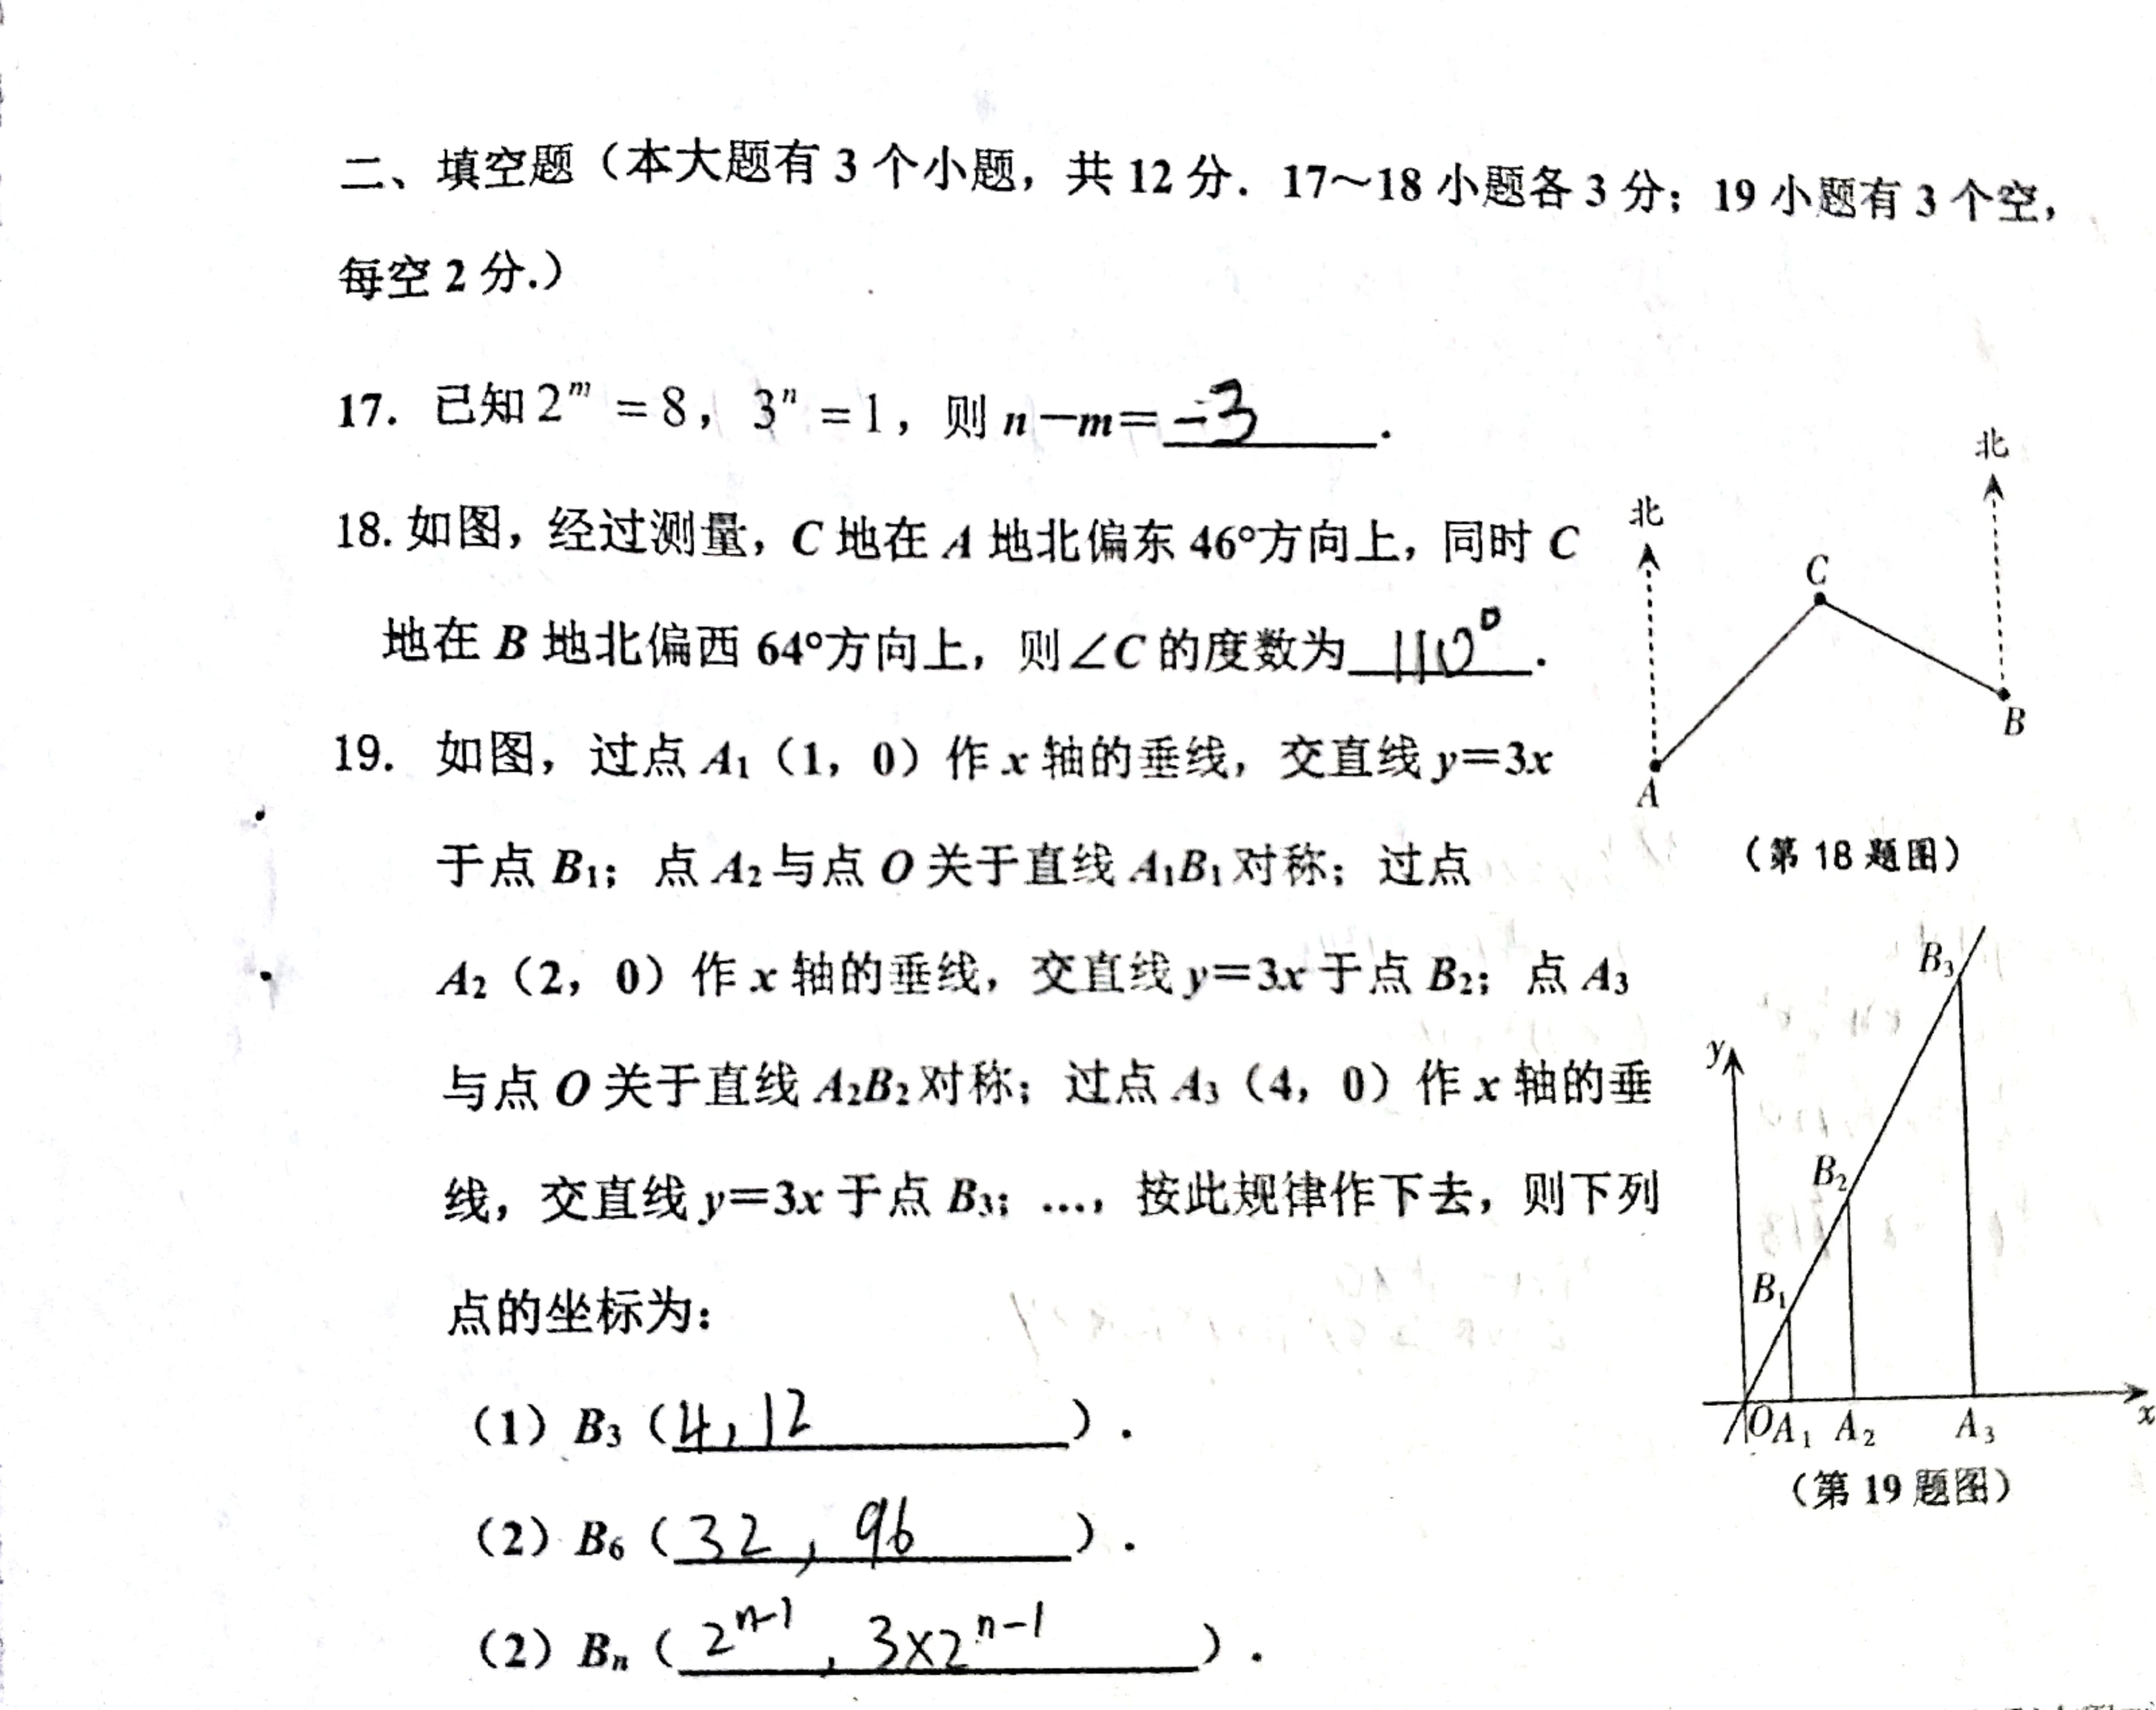 二、填空题（本大题有 3 个小题，共 12 分．17～18 小题各 3 分；19 小题有 3 个空，
每空 2 分.）
17. 已知 2^m = 8，3^n = 1，则 n－m＝ -3 ．
18. 如图，经过测量，C 地在 A 地北偏东 46°方向上，同时 C
地在 B 地北偏西 64°方向上，则∠C 的度数为 110° ．
北
北
C
B
A
（第 18 题图）
19. 如图，过点 A₁（1，0）作 x 轴的垂线，交直线 y＝3x
于点 B₁；点 A₂与点 O 关于直线 A₁B₁对称；过点
A₂（2，0）作 x 轴的垂线，交直线 y＝3x 于点 B₂；点 A₃
与点 O 关于直线 A₂B₂对称；过点 A₃（4，0）作 x 轴的垂
线，交直线 y＝3x 于点 B₃；…，按此规律作下去，则下列
点的坐标为：
（1）B₃（4，12）．
（2）B₆（32，96）．
（2）Bₙ（2^{n-1}，3×2^{n-1}）．
B₃
y
B₂
B₁
O A₁ A₂ A₃ x
（第 19 题图）